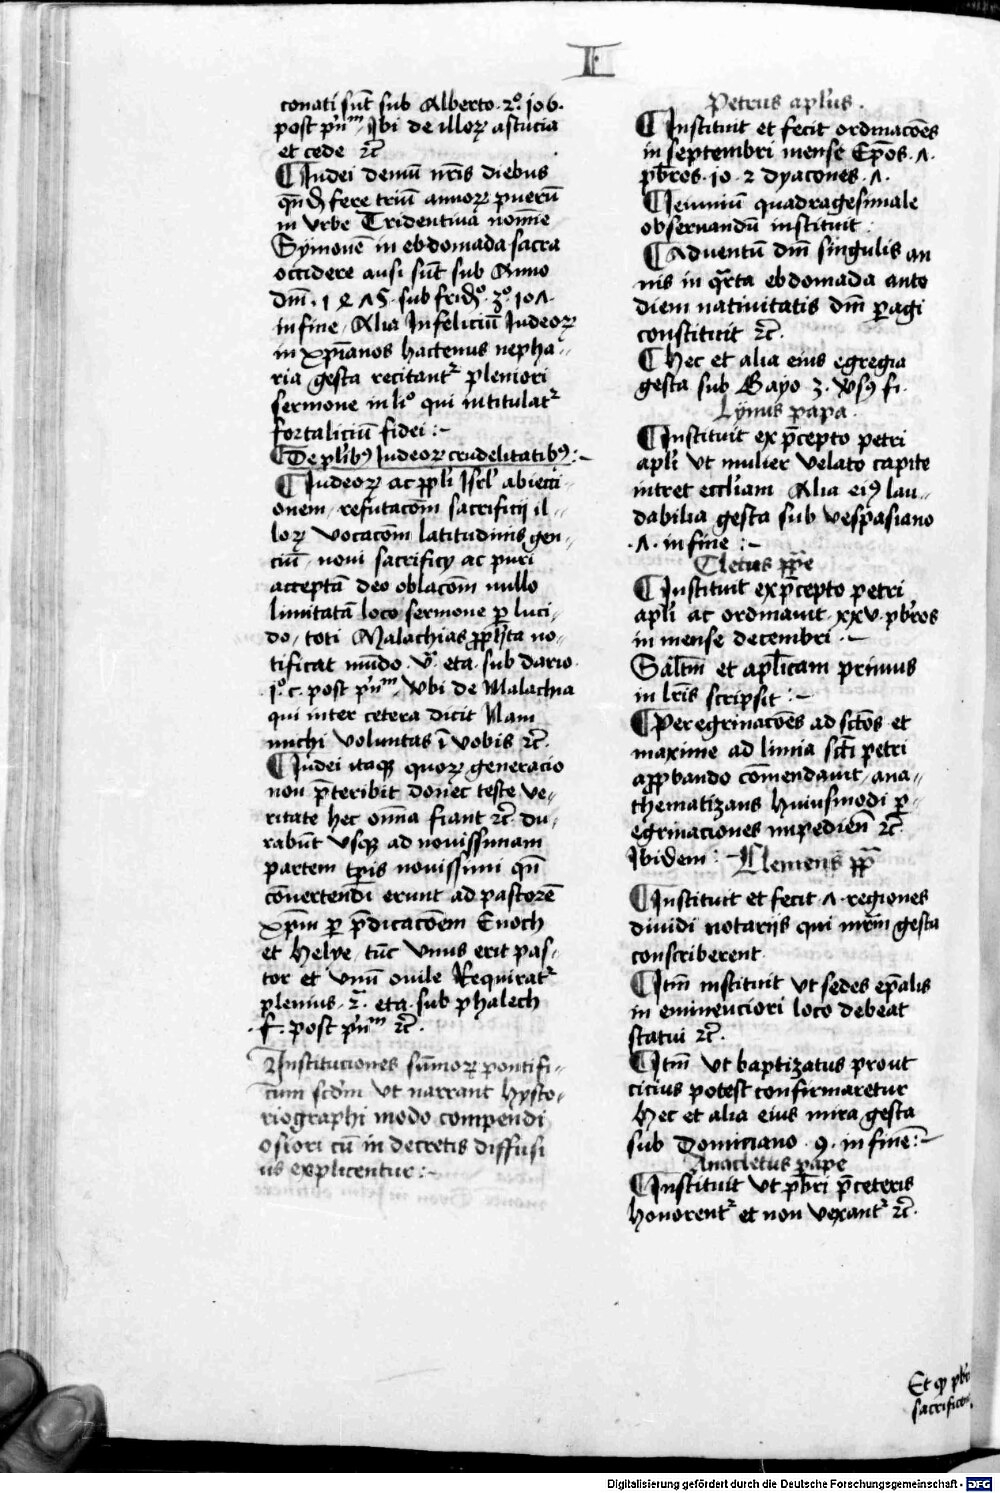 I
conati sūt sub Alberto · 2º · 106 ·
post pʳiūᵐ Ibi de illoꝝ astucia
et cede ⁊c̄
¶ Iudei demū nr̄is diebus
qn̄dā fere triū annoꝝ puerū
in Vrbe Tridentina nomīe
Symonē in ebdomada sacra
occidere ausi sūt sub Anno
dn̄i · 1 4 7 5 · sub frid̄º · 3º · 107 ·
in fine / Alia Infeliciū Iudeoꝝ
in xp̄ianos hactenus nepha-
ria gesta recitantʳ pleniori
sermone in liº qui intitulatʳ
fortaliciū fidei :~
¶ De plʳibꝰ Iudeoꝝ crudelitatibꝰ :~
¶ Iudeoꝝ ac ppl'i Isrl' abiecti-
onem / refutacōm sacrificij il-
loꝝ vocacōm latitudinis gen-
ciū / noui sacrificij ac puri
acceptā deo oblacōm nullo
limitatā loco sermone ꝑ luci-
do / toti Malachias ꝓph̄ta no-
tificat mūdo · vᵃ · eta · sub dario ·
1º · c · post pʳiūᵐ / Vbi de Malachia
qui inter cetera dicit Nam
michi voluntas ī vobis ⁊c̄ ·
¶ Iudei itaqꝫ quoꝝ generacio
non p̄teribit donec teste ve-
ritate hec om̄ia fiant ⁊c̄ du-
rabūt vsqꝫ ad nouissimam
partem tp̄is nouissimi qn̄
cōuertendi erunt ad pastorē
xp̄m ꝑ p̄dicacōem Enoch
et Helye / tūc vnus erit pas-
tor et vnū ouile Requiratʳ
plenius · 2ᵃ · eta · sub phalech
· f · post pʳiūᵐ ⁊c̄ ·
Instituciones sūmoꝝ pontifi-
cum scdm̄ vt narrant hysto-
riographi modo compendi
osiori cū in decretis diffusi
us explicentur :~
Petrus apl'us ·
¶ Instituit et fecit ordinacōes
in septembri mense Ep̄os · 7 ·
pb̄ros · 10 · ⁊ dyacones · 7 ·
¶ Ieiuniū quadragesimale
obseruandū instituit ·
¶ Aduentū dn̄i singulis an
nis in qᵃrta ebdomada ante
diem natiuitatis dn̄i ꝑagi
constituit ⁊c̄ ·
¶ Hec et alia eius egregia
gesta sub Gayo 3 · v̄sꝰ fi ·
Lynus papa ·
¶ Instituit ex p̄cepto petri
apl'i vt mulier velato capite
intret eccl'iam Alia eiꝰ lau-
dabilia gesta sub vespasiano
· 7 · in fine :~
Cletus pp̄e
¶ Instituit ex p̄cepto petri
apl'i ac ordinauit · xxv · pb̄ros
in mense decembri ·~
Sal't̄m et apl'icam primus
in lr̄is scripsit :~
¶ Peregrinacōes ad sctōs et
maxime ad limia sct̄i petri
apꝓbando cōmendauit / ana-
thematizans huiusmodi ꝑ-
egrinaciones impedien̄ ⁊c̄
Ibidem : ~ Clemens pp̄ᵃ
¶ Instituit et fecit · 7 · regiones
diuidi notarijs qui mr̄m gesta
conscriberent ·
¶ Itm̄ instituit vt sedes ep̄alis
in eminenciori loco debeat
statui ⁊c̄ ·
¶ Itm̄ vt baptizatus prout
cicius potest confirmaretur
Hec et alia eius mira gesta
sub Domiciano · 9 · in fine :~
Anacletus pape
¶ Instituit vt pb̄ri p̄ceteris
honorentʳ et non vexantʳ ⁊c̄ ·
Et
Digitalisierung gefördert durch die Deutsche Forschungsgemeinschaft - DFG